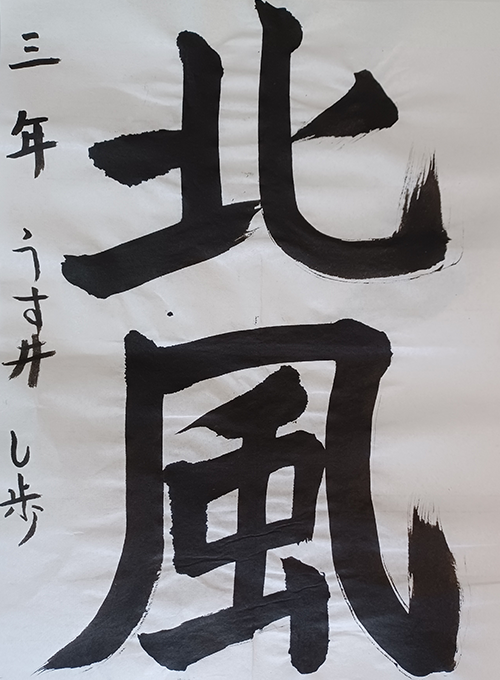 北風
三年 うす井 し歩